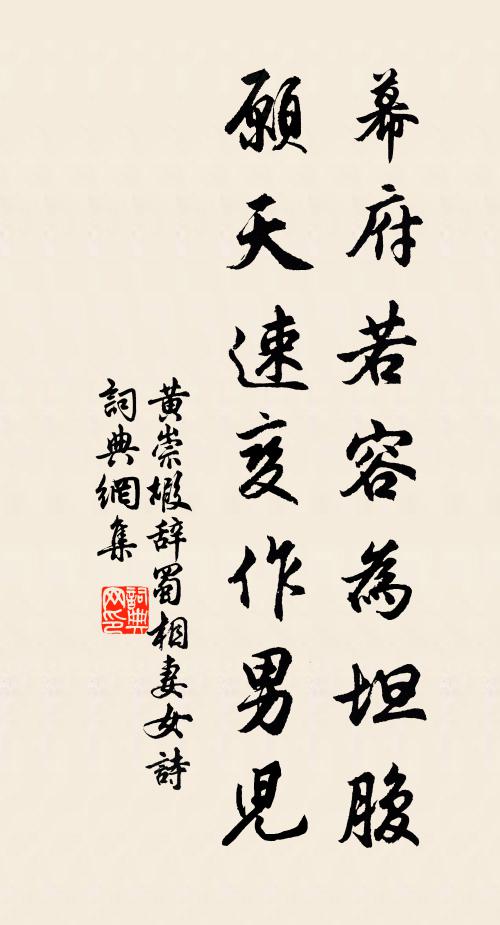 幕府若容為坦腹
願天速变作男児
黄崇嘏辞蜀相妻女詩
詞典網集
詞典
网印